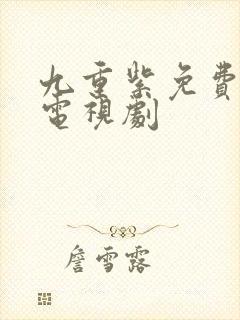 九重紫免費
電視劇
詹雪露